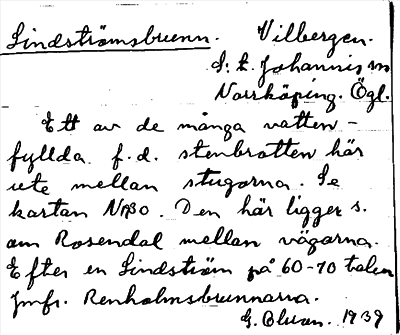 Lindströmsbrunn. Vilbergen.
S:t Johannis sn
Norrköping. Ögl.
Ett av de många vatten-
fyllda f.d. stenbrotten här
ute mellan stugorna. Se
kartan N:o. Den här ligger s.
om Rosendal mellan vägarna.
Efter en Lindström på 60-70 talen
Jmfr. Renholmsbrunnarna.
G. 1939